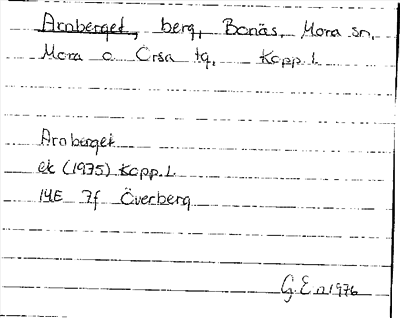 Arnberget, berg, Bonäs. Mora sn,
Mora o Orsa tg. Kopp. L
Arnberget
ek (1975) Kopp. L
14E 7f Överberg
G.E.n 1976